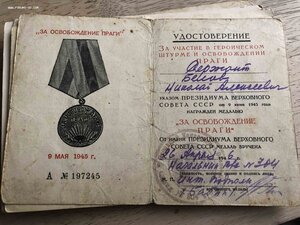 "ЗА ОСВОБОЖДЕНИЕ ПРАГИ"
9 МАЯ 1945 г.
А № 197245
УДОСТОВЕРЕНИЕ
ЗА УЧАСТИЕ В ГЕРОИЧЕСКОМ
ШТУРМЕ И ОСВОБОЖДЕНИИ
ПРАГИ
Сержант
Белов
Николай Алексеевич
УКАЗОМ ПРЕЗИДИУМА ВЕРХОВНОГО
СОВЕТА СССР от 9 июня 1945 года
НАГРАЖДЕН МЕДАЛЬЮ
"ЗА ОСВОБОЖДЕНИЕ
ПРАГИ"
ОТ ИМЕНИ ПРЕЗИДИУМА ВЕРХОВНОГО
СОВЕТА СССР МЕДАЛЬ ВРУЧЕНА
26